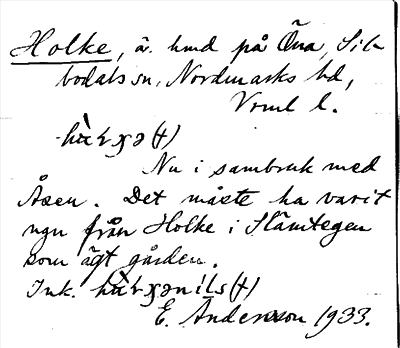 Holke, ä. hmd på Öna, Sil-
bodals sn, Nordmarks hd,
Vrml l.
Nu i sambruk med
Åsen. Det måste ha varit
ngn från Holke i Slämtegen
som ägt gården.
Ink.
E. Anderson 1933.